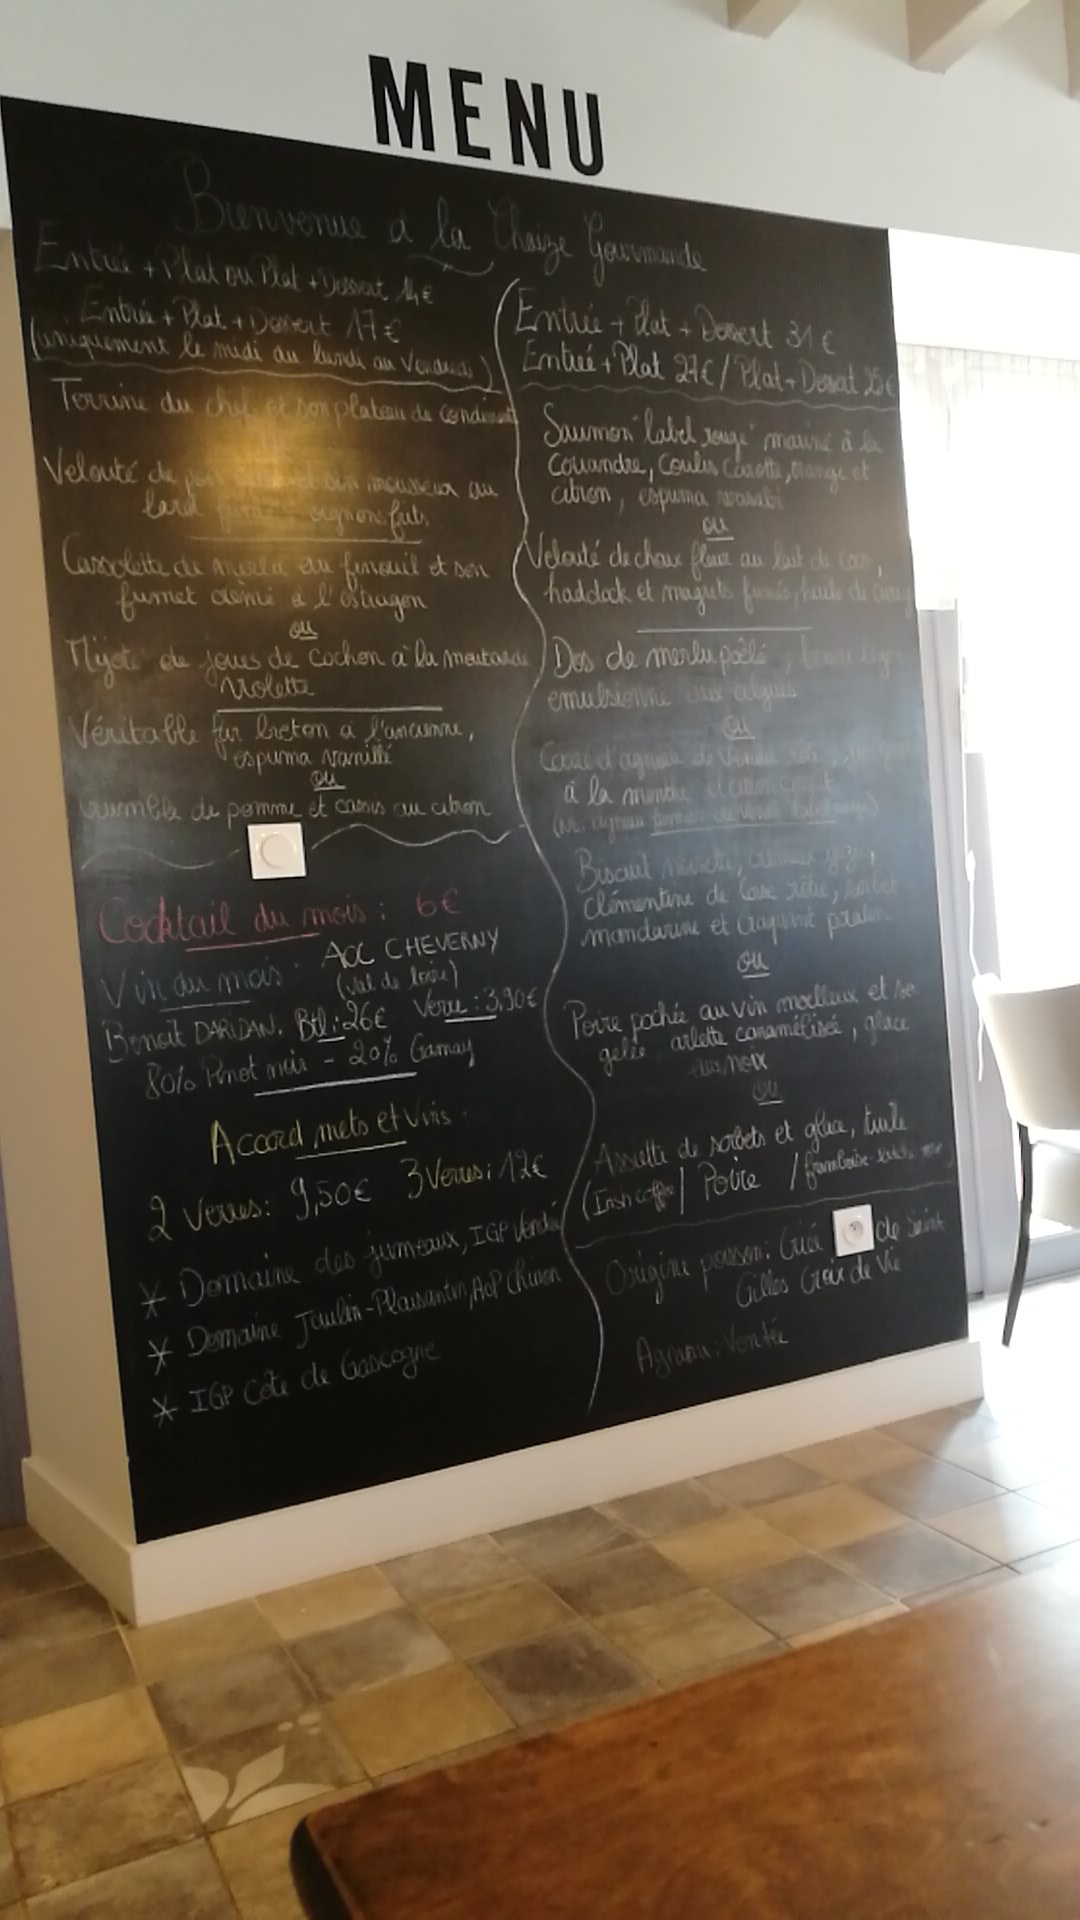 MENU
Bienvenue à la Chaize Gourmande
Entrée + Plat ou Plat + Dessert 14€
Entrée + Plat + Dessert 17€
(uniquement le midi du lundi au Vendredi)
Terrine du chef et son plateau de condiments
Velouté de et son mousseux au
lard oignons frits
Cassolette de merlu au fenouil et son
fumet crème à l'estragon
ou
Mijoté de joues de cochon à la moutarde
violette
Véritable far breton à l'ancienne,
espuma vanillé
ou
Crumble de pomme et cassis au citron
Cocktail du mois : 6€
Vin du mois : AOC CHEVERNY
(Val de loire)
Benoit DARIDAN. Btl : 26€ Verre : 3,90€
80% Pinot noir - 20% Gamay
Accord mets et Vins :
2 Verres : 9,50€ 3 Verres : 12€
* Domaine des jumeaux, IGP Vendée
* Domaine Jaulin-Plaisantin, AOP Chinon
* IGP Côte de Gascogne
Entrée + Plat + Dessert 31€
Entrée + Plat 27€ / Plat + Dessert 25€
Saumon "label rouge" mariné à la
coriandre, coulis carotte, orange et
citron, espuma wasabi
ou
Velouté de choux fleur au lait de coco,
haddock et magrets fumés, huile de curry
Dos de merlu poêlé, beurre léger
emulsionné aux algues
ou
Carré d'agneau de Vendée rôti,
à la menthe et citron confit
agneau fermier de Vendée label rouge)
Biscuit noisette, crémeux yuzu,
clémentine de Corse rôtie, sorbet
mandarine et craquant pralin
ou
Poire pochée au vin moelleux et sa
gelée, arlette caramélisée, glace
aux noix
ou
Assiette de sorbets et glace, tuile
(Irish coffee / Poire / framboise
Origine poisson : Criée de Saint
Gilles Croix de Vie
Agneau : Vendée